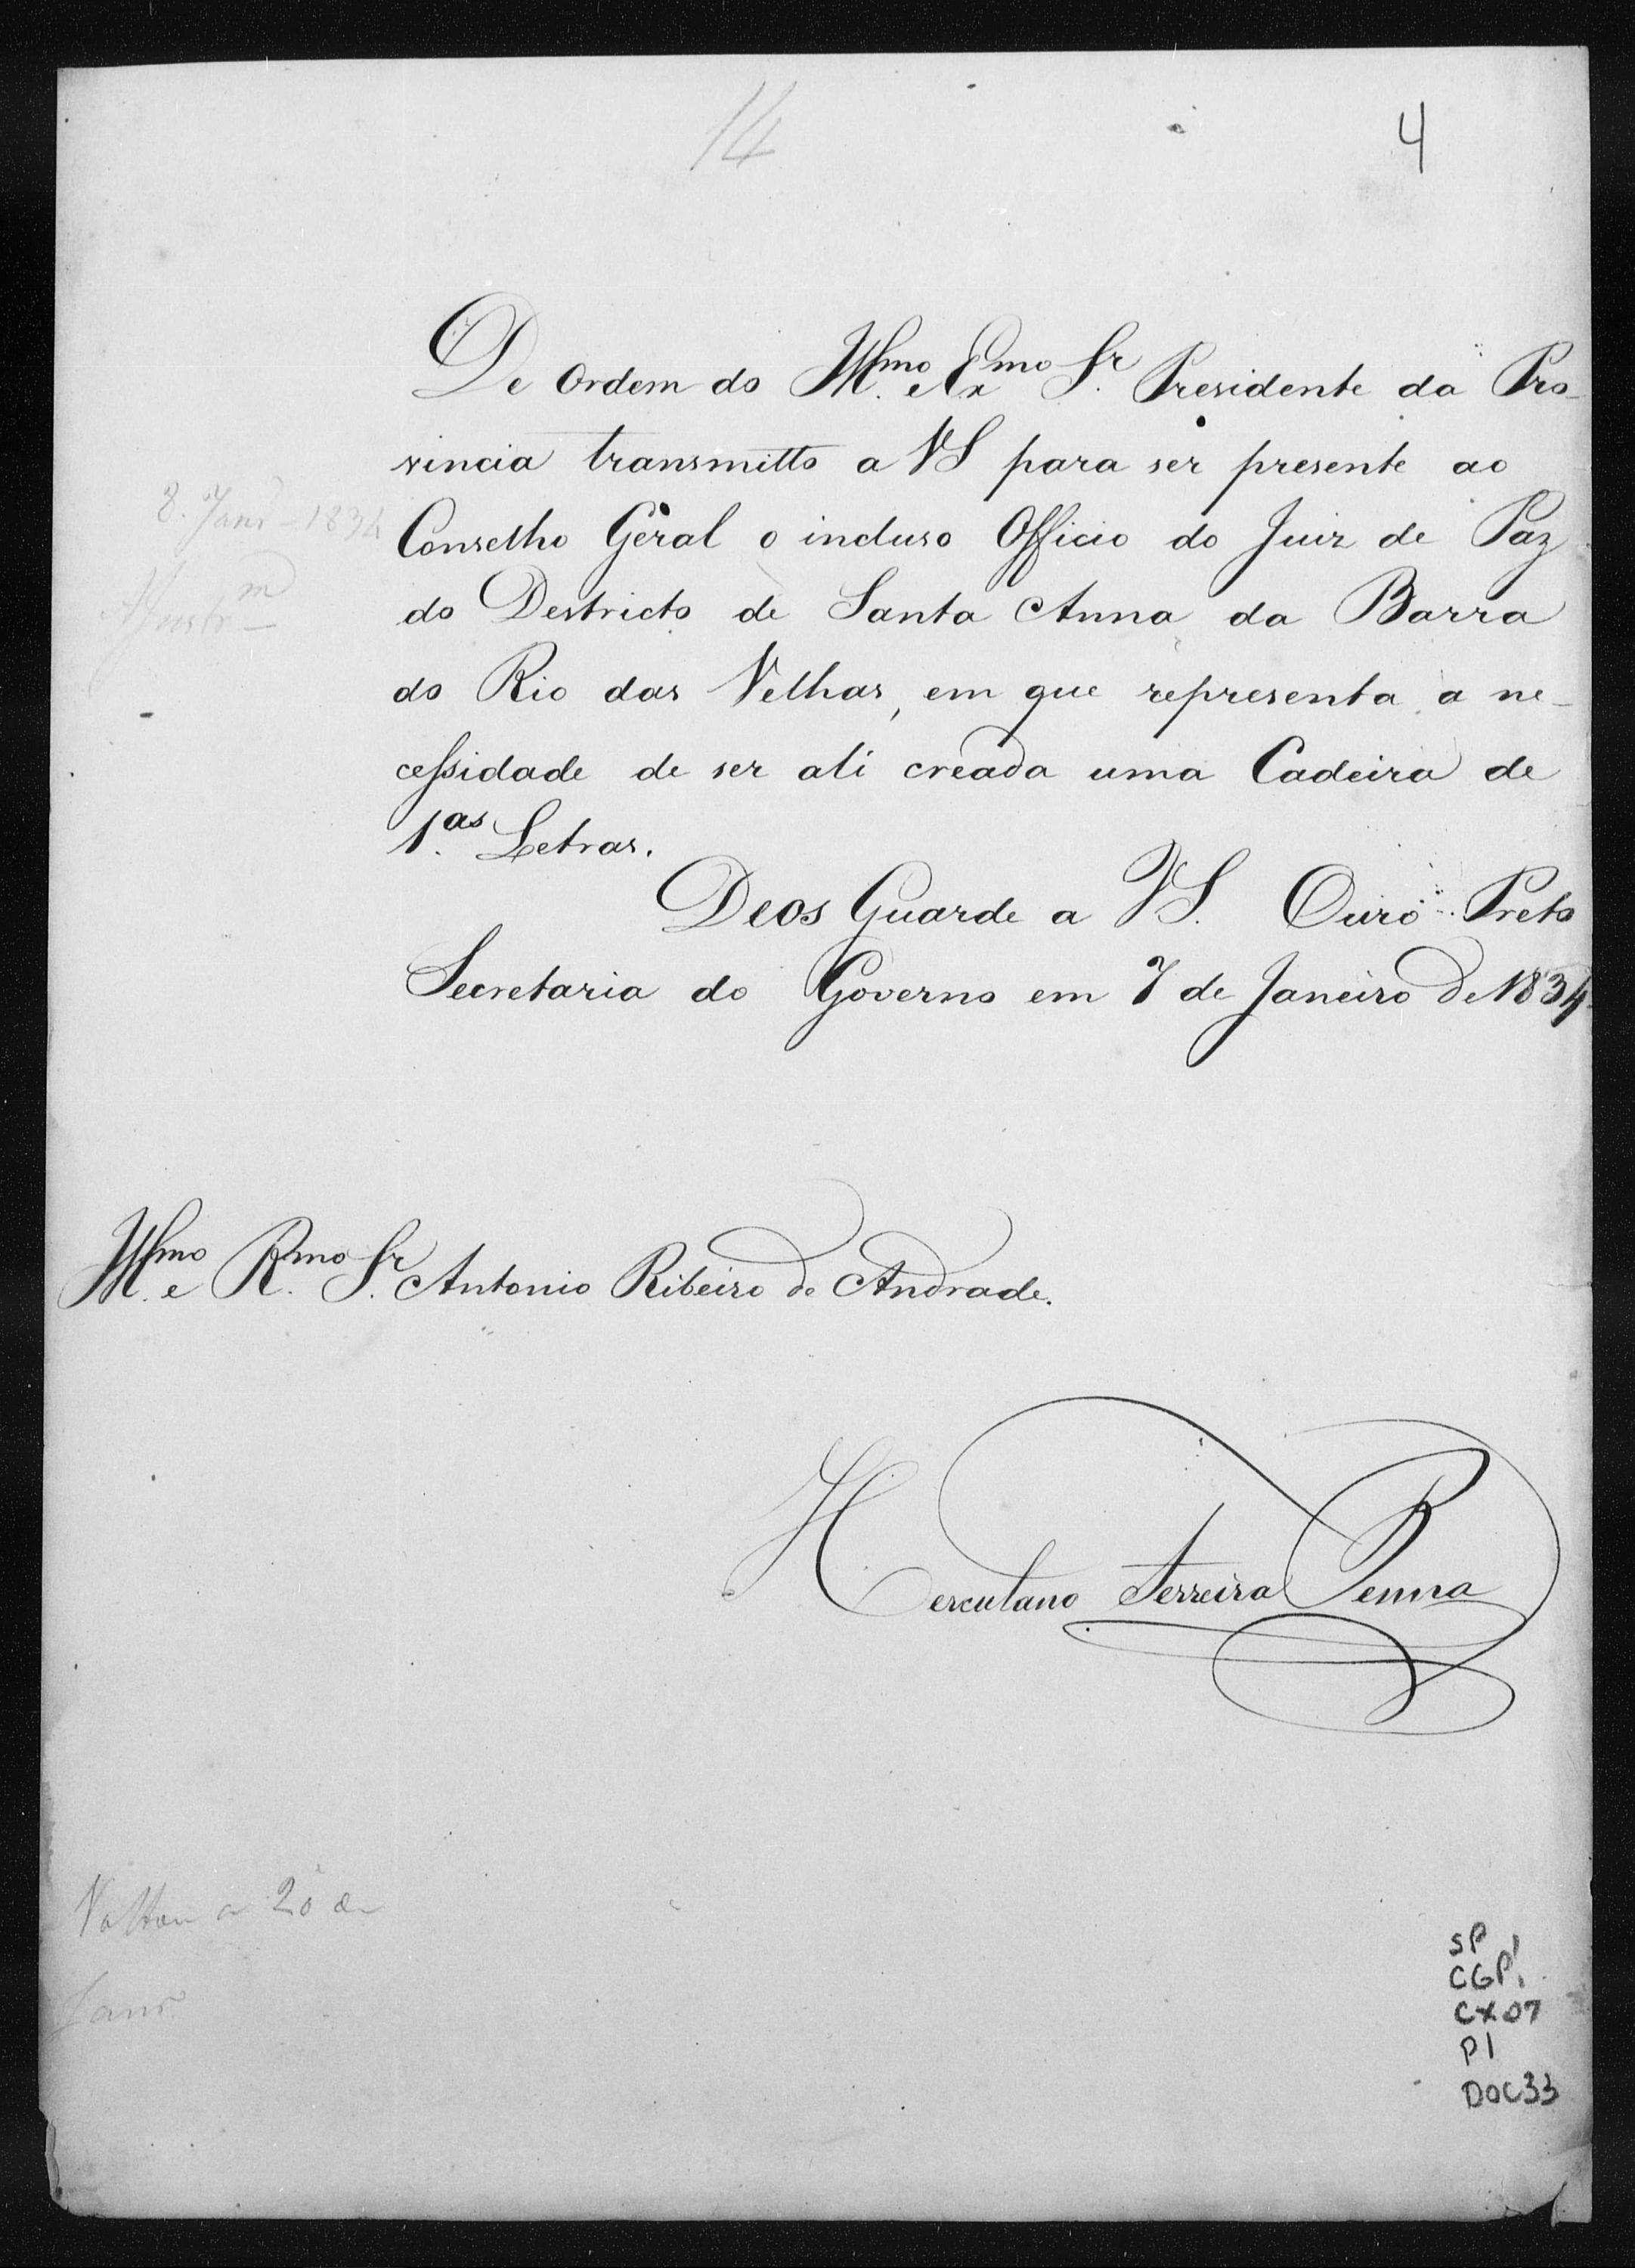 14
4
De Ordem do Illmo. e Exmo Sr. Presidente da Pro-
vincia transmitto a VS para ser presente ao
8. Janro - 1834
Conselho Geral o incluso Officio do Juiz de Paz
do Destricto de Santa Anna da Barra
do Rio das Velhas, em que representa a ne-
cessidade de ser ali creada uma Cadeira de
1.as Letras.
Deos Guarde a VS. Ouro Preto
Secretaria do Governo em 7 de Janeiro de 1834
Illmo. e Rmo. Sr. Antonio Ribeiro de Andrade.
Herculano Ferreira Penna
a 20 de
Janro
SP
CGP1
CX07
P1
DOC33